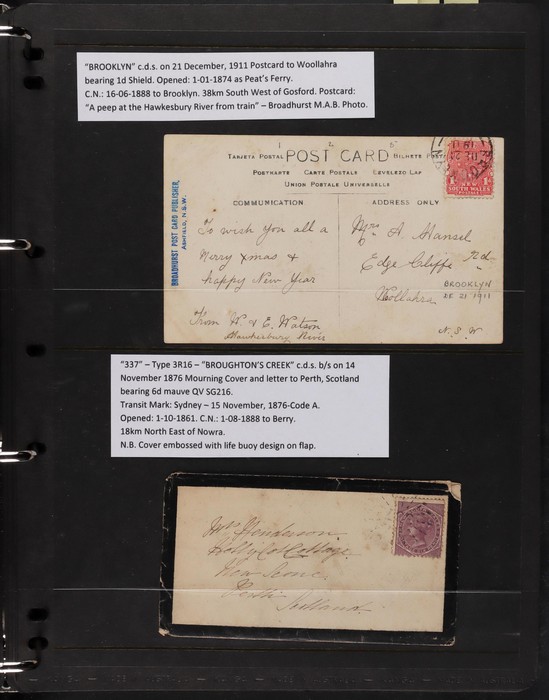 "BROOKLYN" c.d.s. on 21 December, 1911 Postcard to Woollahra
bearing 1d Shield. Opened: 1-01-1874 as Peat's Ferry.
C.N.: 16-06-1888 to Brooklyn. 38km South West of Gosford. Postcard:
"A peep at the Hawkesbury River from train" – Broadhurst M.A.B. Photo.
TARJETA POSTAL POST CARD BILHETE
POSTKARTE CARTE POSTALE LEVELEZO LAP
UNION POSTALE UNIVERSELLE
COMMUNICATION
ADDRESS ONLY
BROADHURST POST CARD PUBLISHER,
ASHFIELD, N.S.W.
NEW
SOUTH WALES
To wish you all a
Merry Xmas &
happy New Year
From W. & E. Watson
Hawkesbury River
Mrs A Hansel
Edge Cliffe Rd
Woollahra
N.S.W
BROOKLYN
DE 21 1911
"337" – Type 3R16 – "BROUGHTON'S CREEK" c.d.s. b/s on 14
November 1876 Mourning Cover and letter to Perth, Scotland
bearing 6d mauve QV SG216.
Transit Mark: Sydney – 15 November, 1876-Code A.
Opened: 1-10-1861. C.N.: 1-08-1888 to Berry.
18km North East of Nowra.
N.B. Cover embossed with life buoy design on flap.
Mrs Henderson
Cottage
New Scone
Perth
Scotland